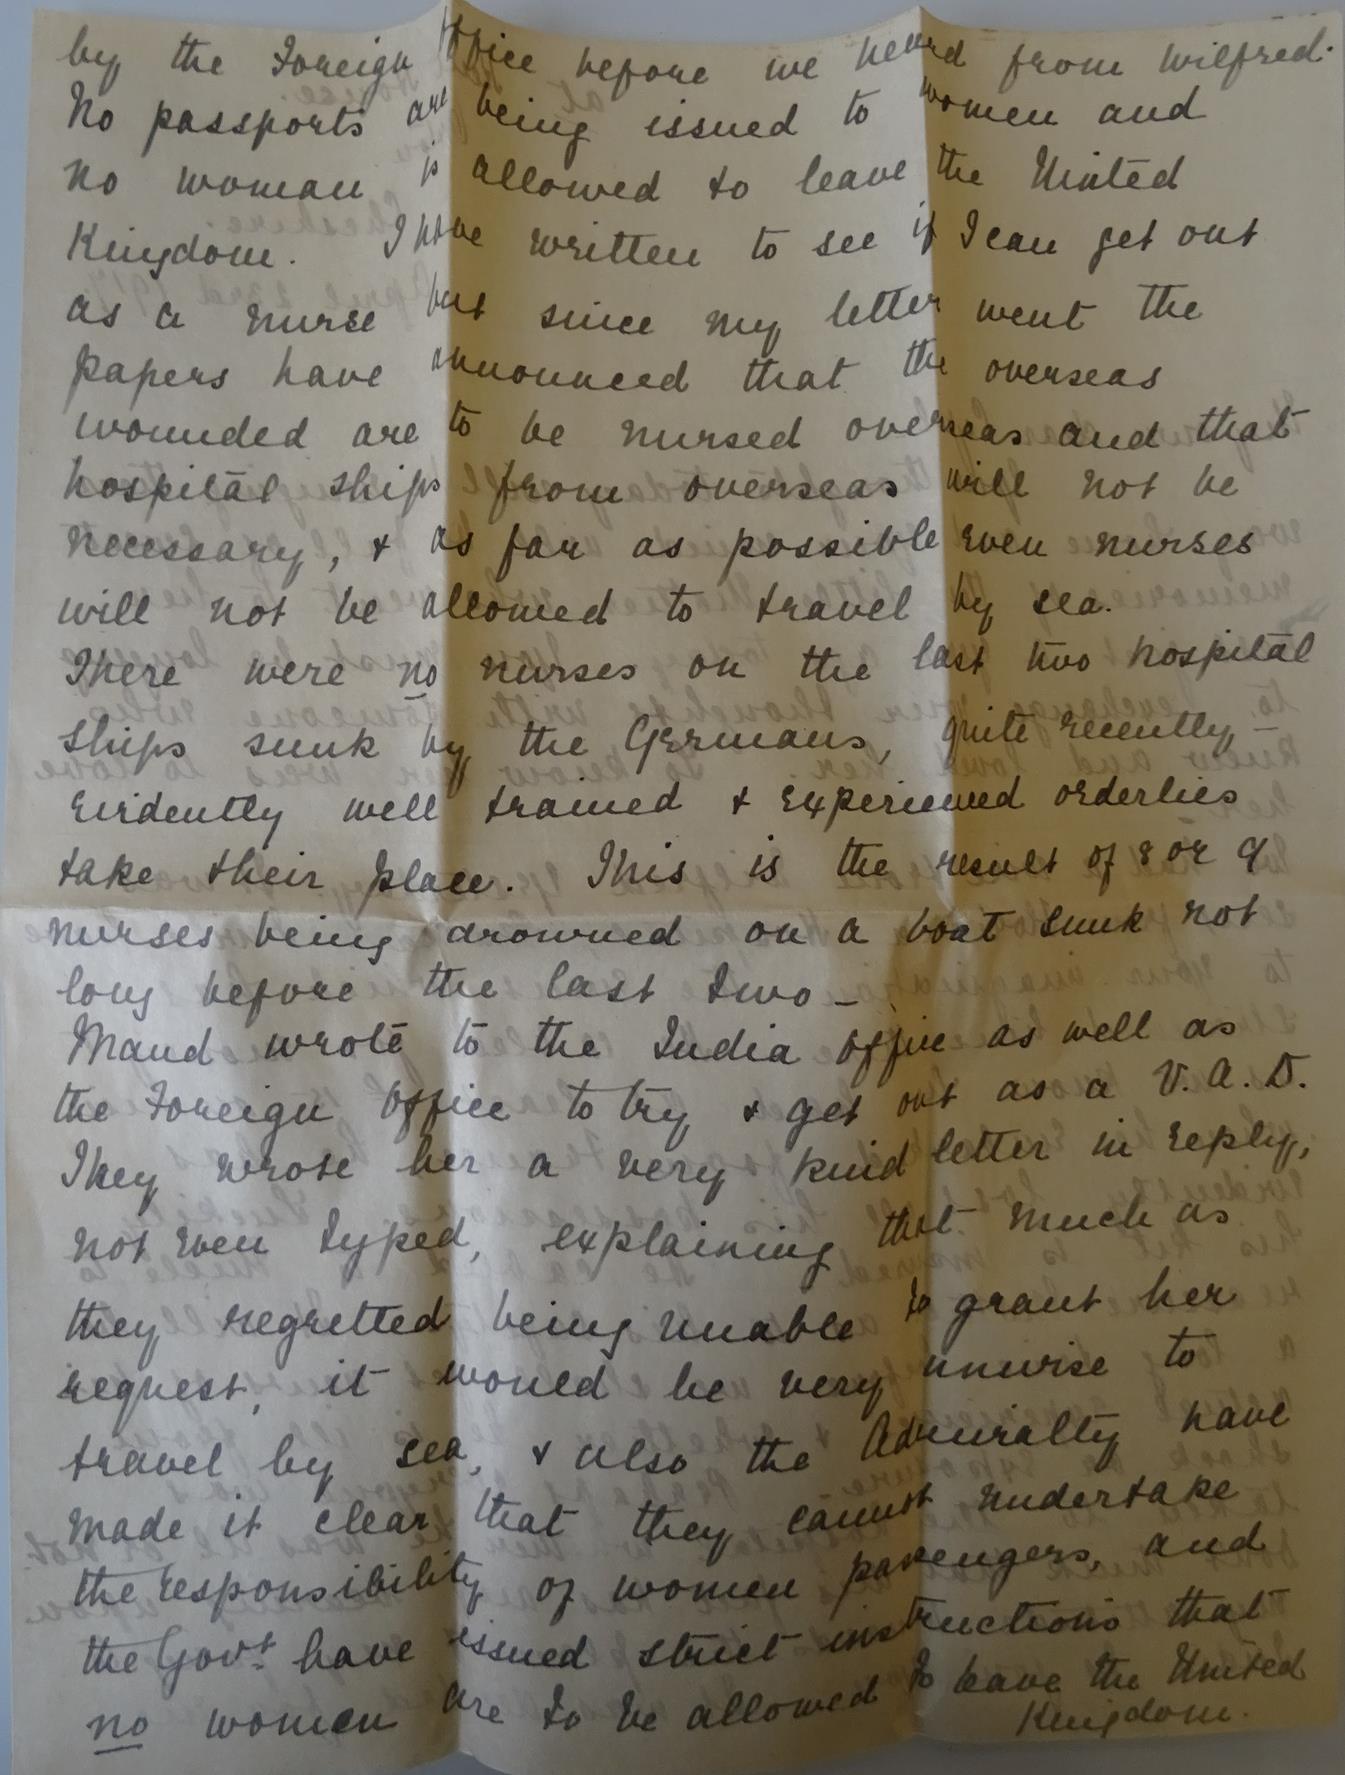 by the Foreign Office before we heard from Wilfred.
No passports are being issued to women and
no woman is allowed to leave the United
Kingdom. I have written to see if I can get out
as a nurse but since my letter went the
papers have announced that the overseas
wounded are to be nursed overseas and that
hospital ships from overseas will not be
necessary, & as far as possible even nurses
will not be allowed to travel by sea.
There were no nurses on the last two hospital
ships sunk by the Germans, quite recently –
evidently well trained & experienced orderlies
take their place. This is the result of 8 or 9
nurses being drowned on a boat sunk not
long before the last two –
Maud wrote to the India Office as well as
the Foreign Office to try & get out as a V.A.D.
They wrote her a very kind letter in reply,
not even typed, explaining that much as
they regretted being unable to grant her
request, it would be very unwise to
travel by sea, & also the Admiralty have
made it clear that they cannot undertake
the responsibility of women passengers, and
the Govt. have issued strict instructions that
no women are to be allowed to leave the United
Kingdom.